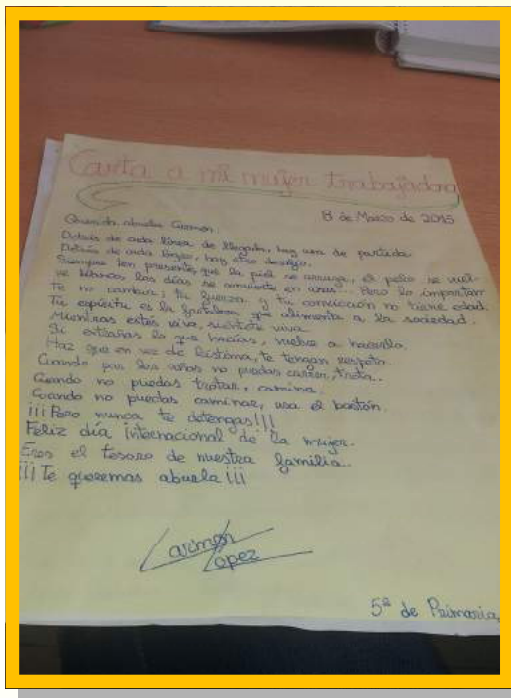 Carta a mi mujer trabajadora
8 de Marzo de 2015
Querida abuela Carmen:
Detrás de cada línea de llegada, hay una de partida.
Detrás de cada logro, hay otro desafío.
Siempre ten presente, que la piel se arruga, el pelo se vuel-
ve blanco, los días se convierten en años... Pero lo importan
te no cambia; tu fuerza y tu convicción no tiene edad.
Tu espíritu es la que alimenta a la sociedad.
Mientras estés viva, siéntete viva.
Si extrañas lo que hacías, vuelve a hacerlo.
Haz que en vez de lástima, te tengan respeto.
Cuando por los años no puedas correr, trota..
Cuando no puedas trotar, camina.
Cuando no puedas caminar, usa el bastón.
¡¡¡Pero nunca te detengas!!!
Feliz día internacional de la mujer.
Eres el tesoro de nuestra familia..
¡¡¡Te queremos abuela!!!
Carmen
López
5º de Primaria,